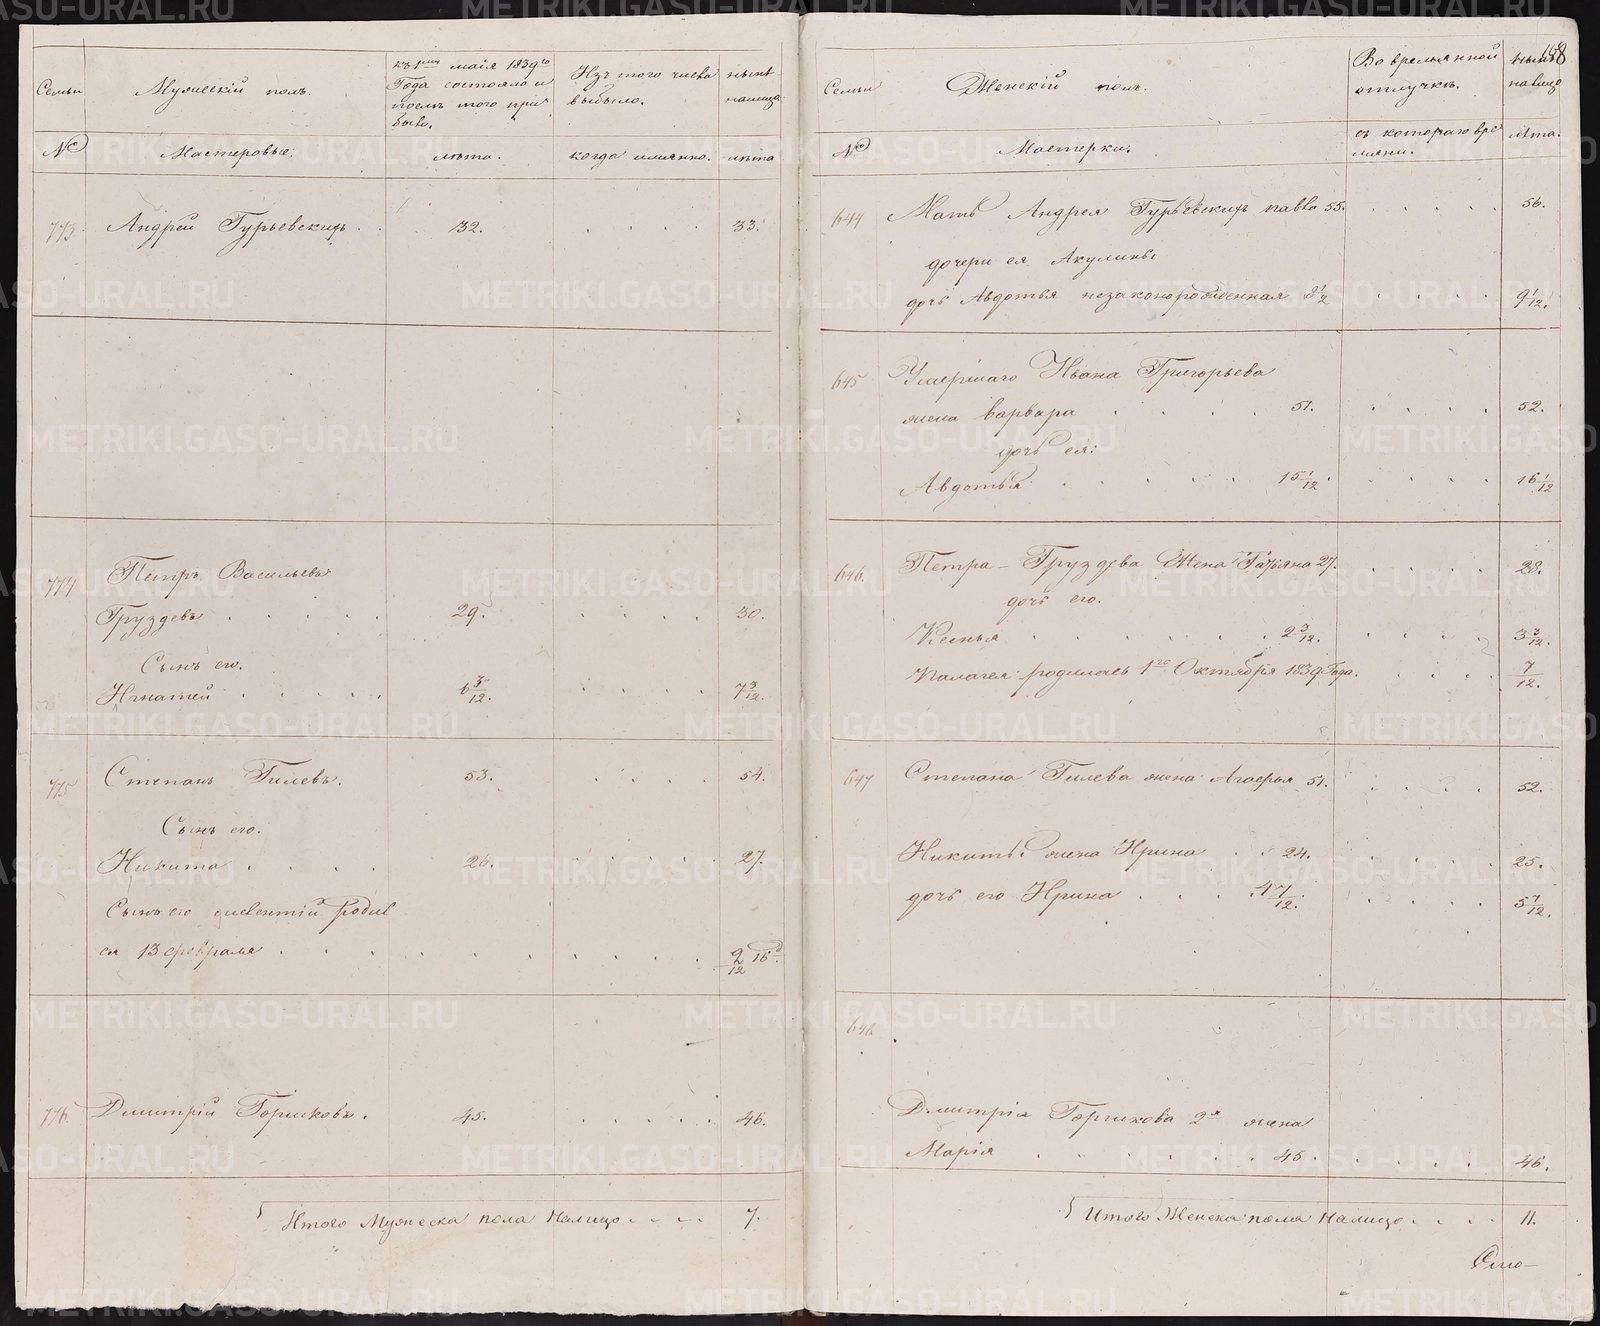 Семьи
Мужескій полъ.
къ 1му маія 1839го
Года состояло и
послѣ того при
было.
Изъ того числа
выбыло.
нынѣ
налицо
№
Мастеровые.
лѣта.
когда имянно.
лѣта
773 Андрей Гурьевскихъ . 32. . . . . 33.
774 Петръ Васильевъ
Груздевъ . . . . . 29. . . . . 30.
Сынъ его.
Игнатей . . . . . 6 3/12. . . . . 7 3/12.
775 Степанъ Гилевъ. 53. . . . . 54.
Сынъ его.
Никита . . . . 26. . . . . 27.
Сынъ его родил
ся 13 февраля . . . . . . . . . . . 2/12 16.
776 Дмитрій Горшковъ. 45. . . . . . 46.
Итого Мужеска пола налицо . . . . 7.
158
Семьи
Женскій полъ.
Во временной
отлучкѣ.
нынѣ
налицо
№
Мастерки.
съ котораго вре
мяни.
лѣта.
644 Мать Андрея Гурьевскихъ 55. . . . . 56.
дочери ея Акулины
дочь Авдотья незаконорожденная 8 1/2 . . . . 9 1/12.
645 Умершаго Ивана Григорьева
жена Варвара . . . . 51. . . . . 52.
дочь ея:
Авдотья . . . . . 15 1/12. . . . . 16 1/12
646. Петра Груздева Жена Татьяна 27. . . . . 28.
дочь его.
Ксенья . . . . . . . 2 3/12. . . . . 3 3/12.
Палагея родилась 1го Октября 1839 Года. . . . . 7/12.
647 Степана Гилева жена Агафья 51. . . . . 52.
Никиты жена Ирина . . 24. . . . . 25.
дочь его Ирина . . . 4 7/12. . . . . 5 7/12.
648
Дмитрія Горшкова 2я жена
Марія . . . . . . . 45. . . . . 46.
Итого Женска пола налицо . . . . 11.
METRIKI.GASO-URAL.RU